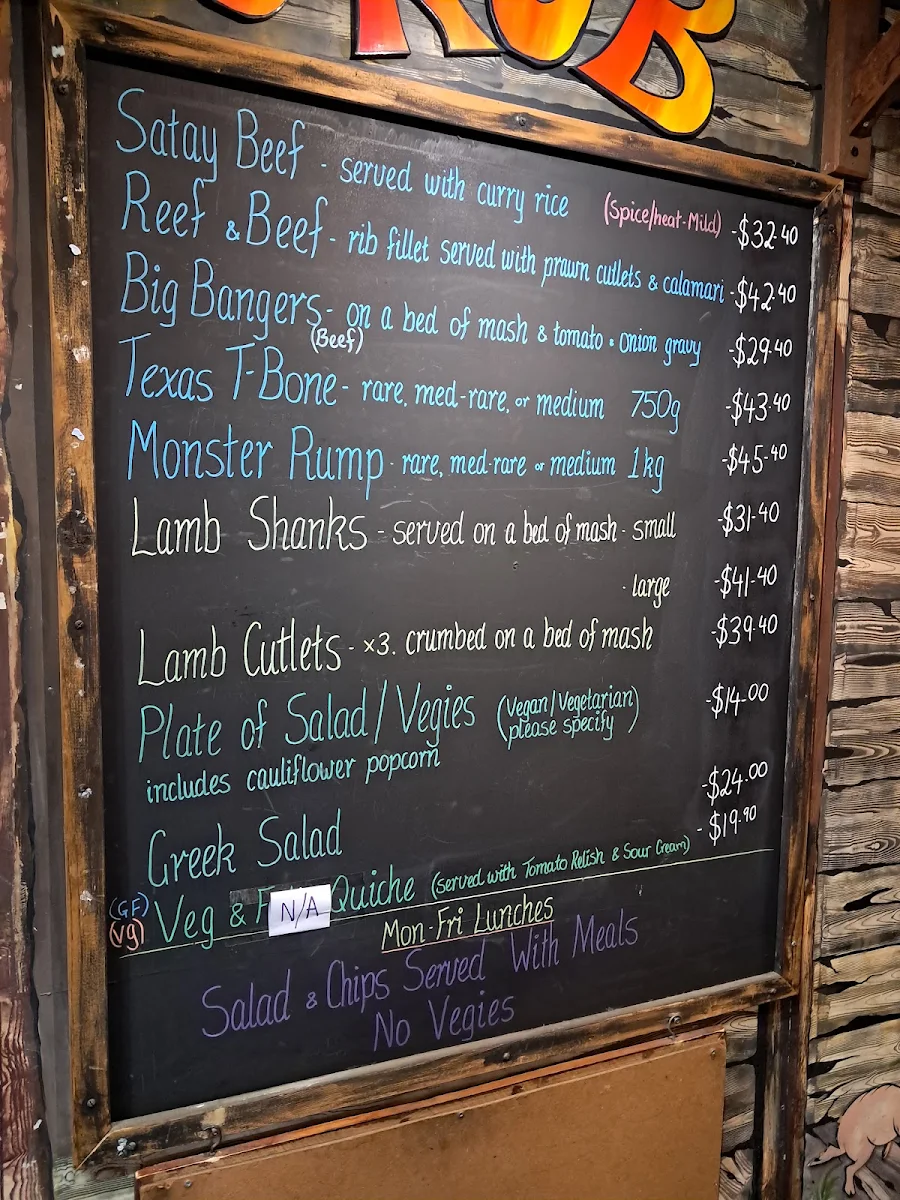 RUB
Satay Beef - served with curry rice (Spice/heat-Mild) -$32.40
Reef & Beef - rib fillet served with prawn cutlets & calamari -$42.40
Big Bangers - on a bed of mash & tomato & onion gravy -$29.40
(Beef)
Texas T-Bone - rare, med-rare, or medium 750g -$43.40
Monster Rump - rare, med-rare or medium 1kg -$45.40
Lamb Shanks - served on a bed of mash - small -$31.40
- large -$41.40
Lamb Cutlets - x3. crumbed on a bed of mash -$39.40
Plate of Salad/Vegies (Vegan/Vegetarian) please specify) -$14.00
includes cauliflower popcorn
Greek Salad -$24.00
(GF) (vg) Veg & N/A Quiche (served with Tomato Relish & Sour Cream) -$19.90
Mon-Fri Lunches
Salad & Chips Served With Meals
No Vegies